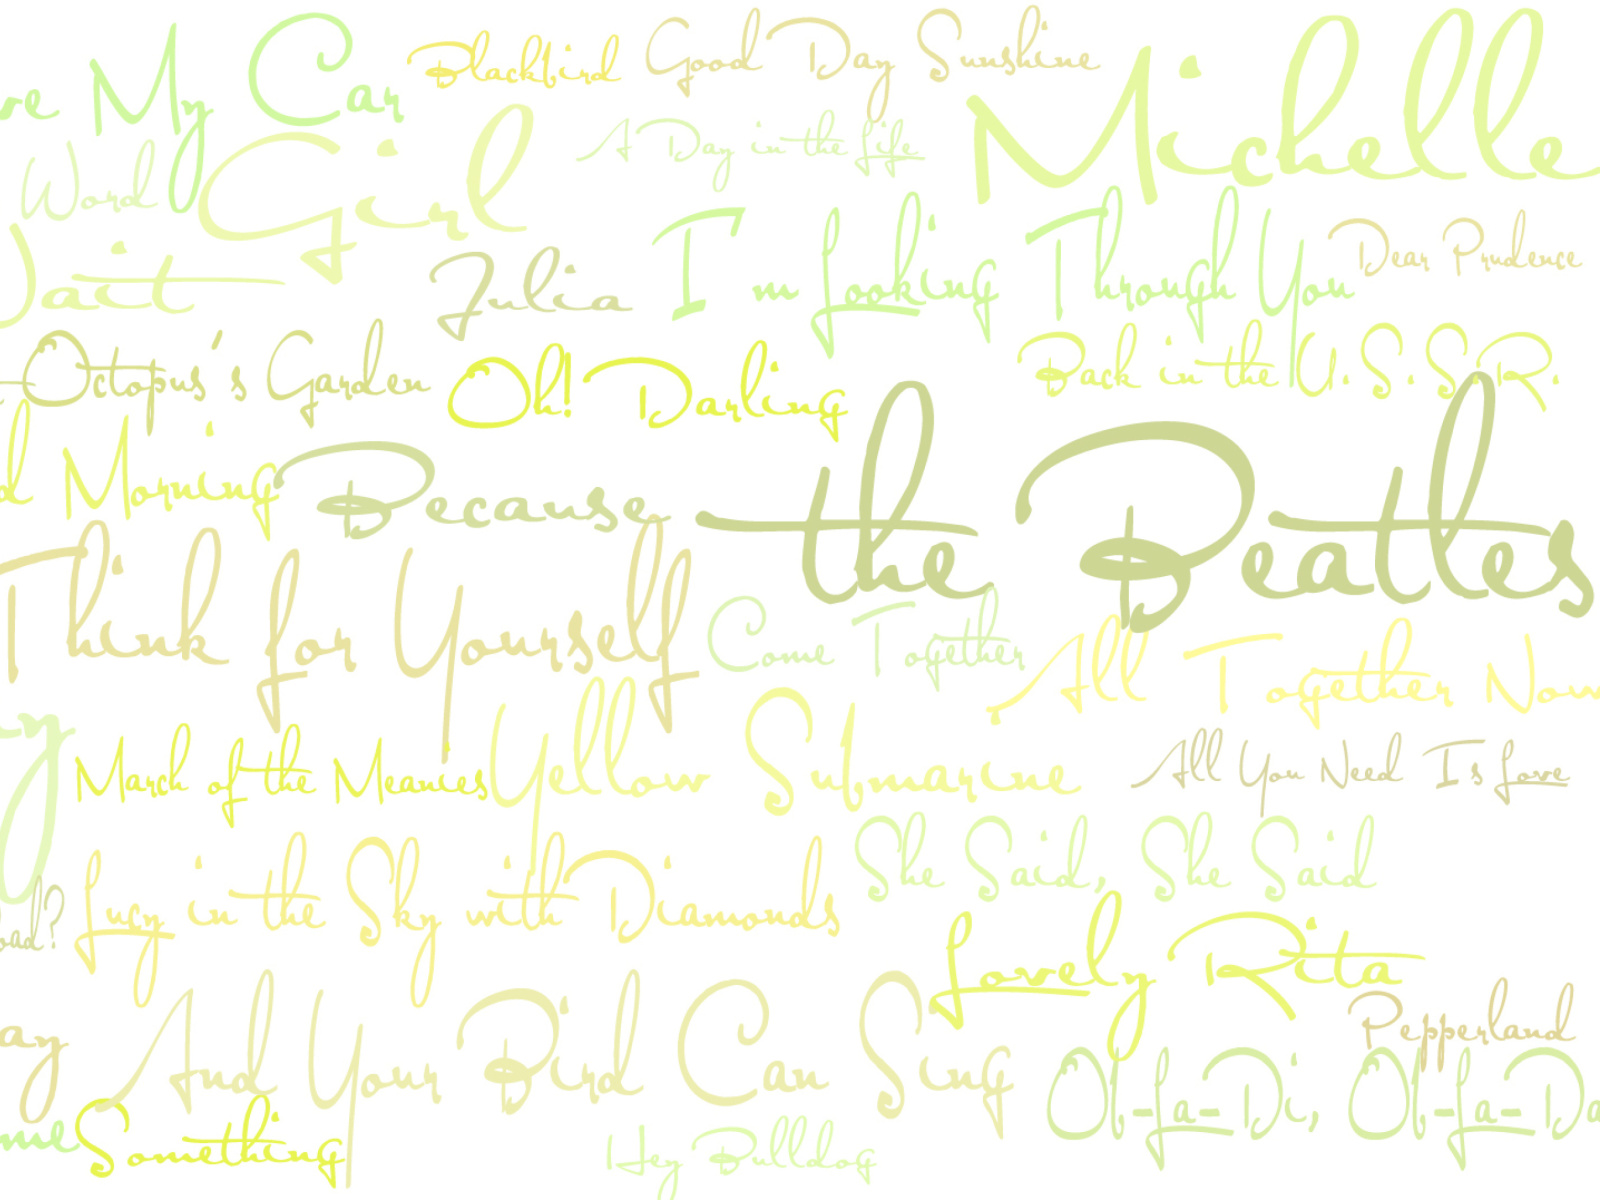 re My Car
Blackbird
Good Day Sunshine
Michelle
Word
Girl
A Day in the Life
ait
Julia
I'm Looking Through You
Dear Prudence
Octopus's Garden
Oh! Darling
Back in the U.S.S.R.
d Morning
Because
the Beatles
Think for Yourself
Come Together
All Together Now
y
March of the Meanies
Yellow Submarine
All You Need Is Love
She Said, She Said
Lucy in the Sky with Diamonds
oad?
Lovely Rita
ay
And Your Bird Can Sing
Pepperland
Ob-La-Di, Ob-La-Da
me
Something
Hey Bulldog